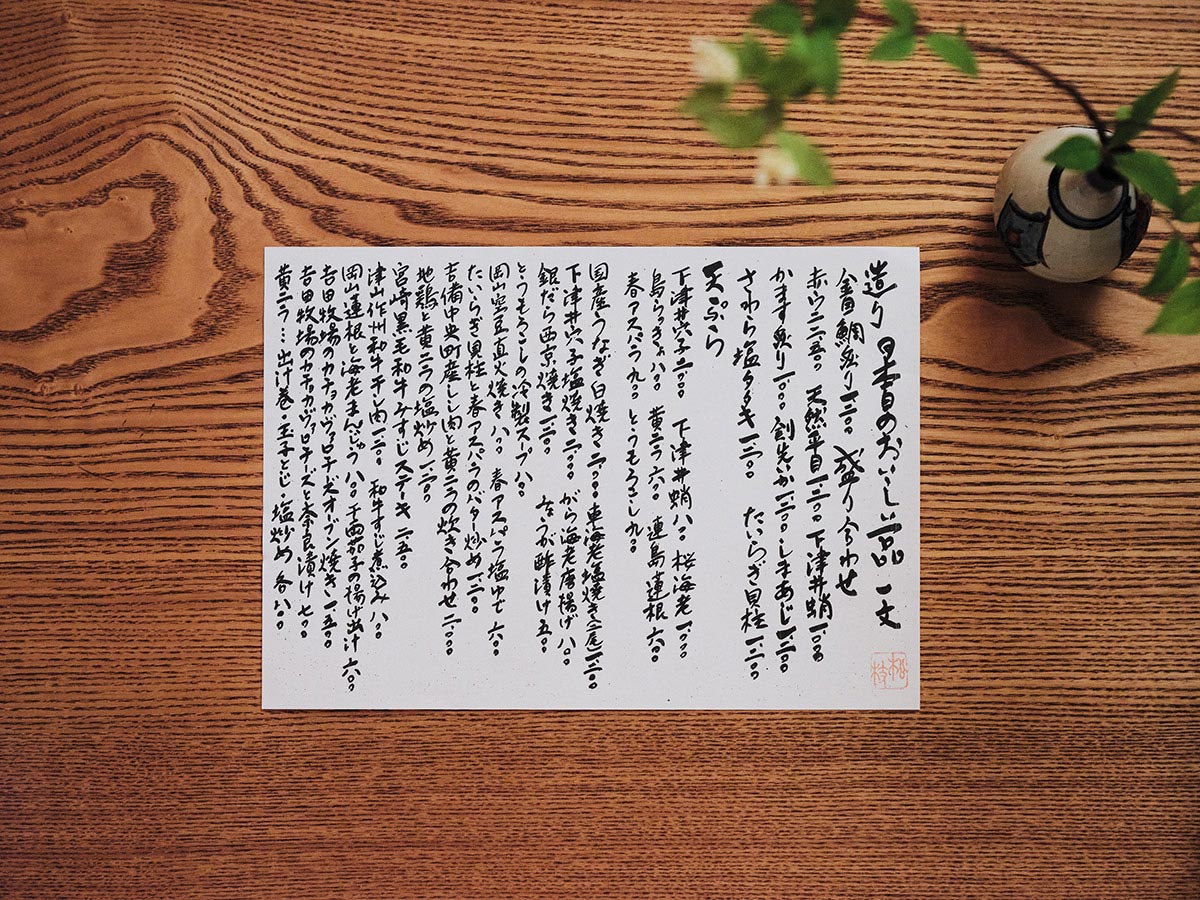 造り 日本酒のおいしい一品 一文
金目鯛炙り一二〇〇 盛り合わせ
赤ウニ二二五〇 天然平目一二〇〇 下津井蛸一〇〇〇
かます炙り一一〇〇 剣先いか一二〇〇 しまあじ一二〇〇
さわら塩タタキ一二〇〇 たいらぎ貝柱一二〇〇
天ぷら
下津井穴子二〇〇〇 下津井蛸八〇〇 桜海老一〇〇〇
島らっきょ八〇〇 黄ニラ六〇〇 連島蓮根六〇〇
春アスパラ九〇〇 とうもろこし九〇〇
国産うなぎ白焼き二八〇〇 車海老塩焼き(二尾)一二〇〇
下津井穴子塩焼き二〇〇〇 がら海老唐揚げ八〇〇
銀だら西京焼き一二〇〇 みょうが酢漬け五〇〇
とうもろこしの冷製スープ八〇〇
岡山空豆直火焼き八〇〇 春アスパラ塩ゆで六〇〇
たいらぎ貝柱と春アスパラのバター炒め一二〇〇
吉備中央町産しし肉と黄ニラの炊き合わせ二〇〇〇
地鶏と黄ニラの塩炒め一二〇〇
宮崎黒毛和牛みすじステーキ二二五〇
津山作州和牛干し肉一二〇〇 和牛すじ煮込み八〇〇
岡山蓮根と海老まんじゅう八〇〇 千両茄子の揚げ出汁六〇〇
吉田牧場のカチョカヴァロチーズオーブン焼き一一五〇
吉田牧場のカチョカヴァロチーズと奈良漬け七〇〇
黄ニラ…出汁巻・玉子とじ・塩炒め 各八〇〇
松枝